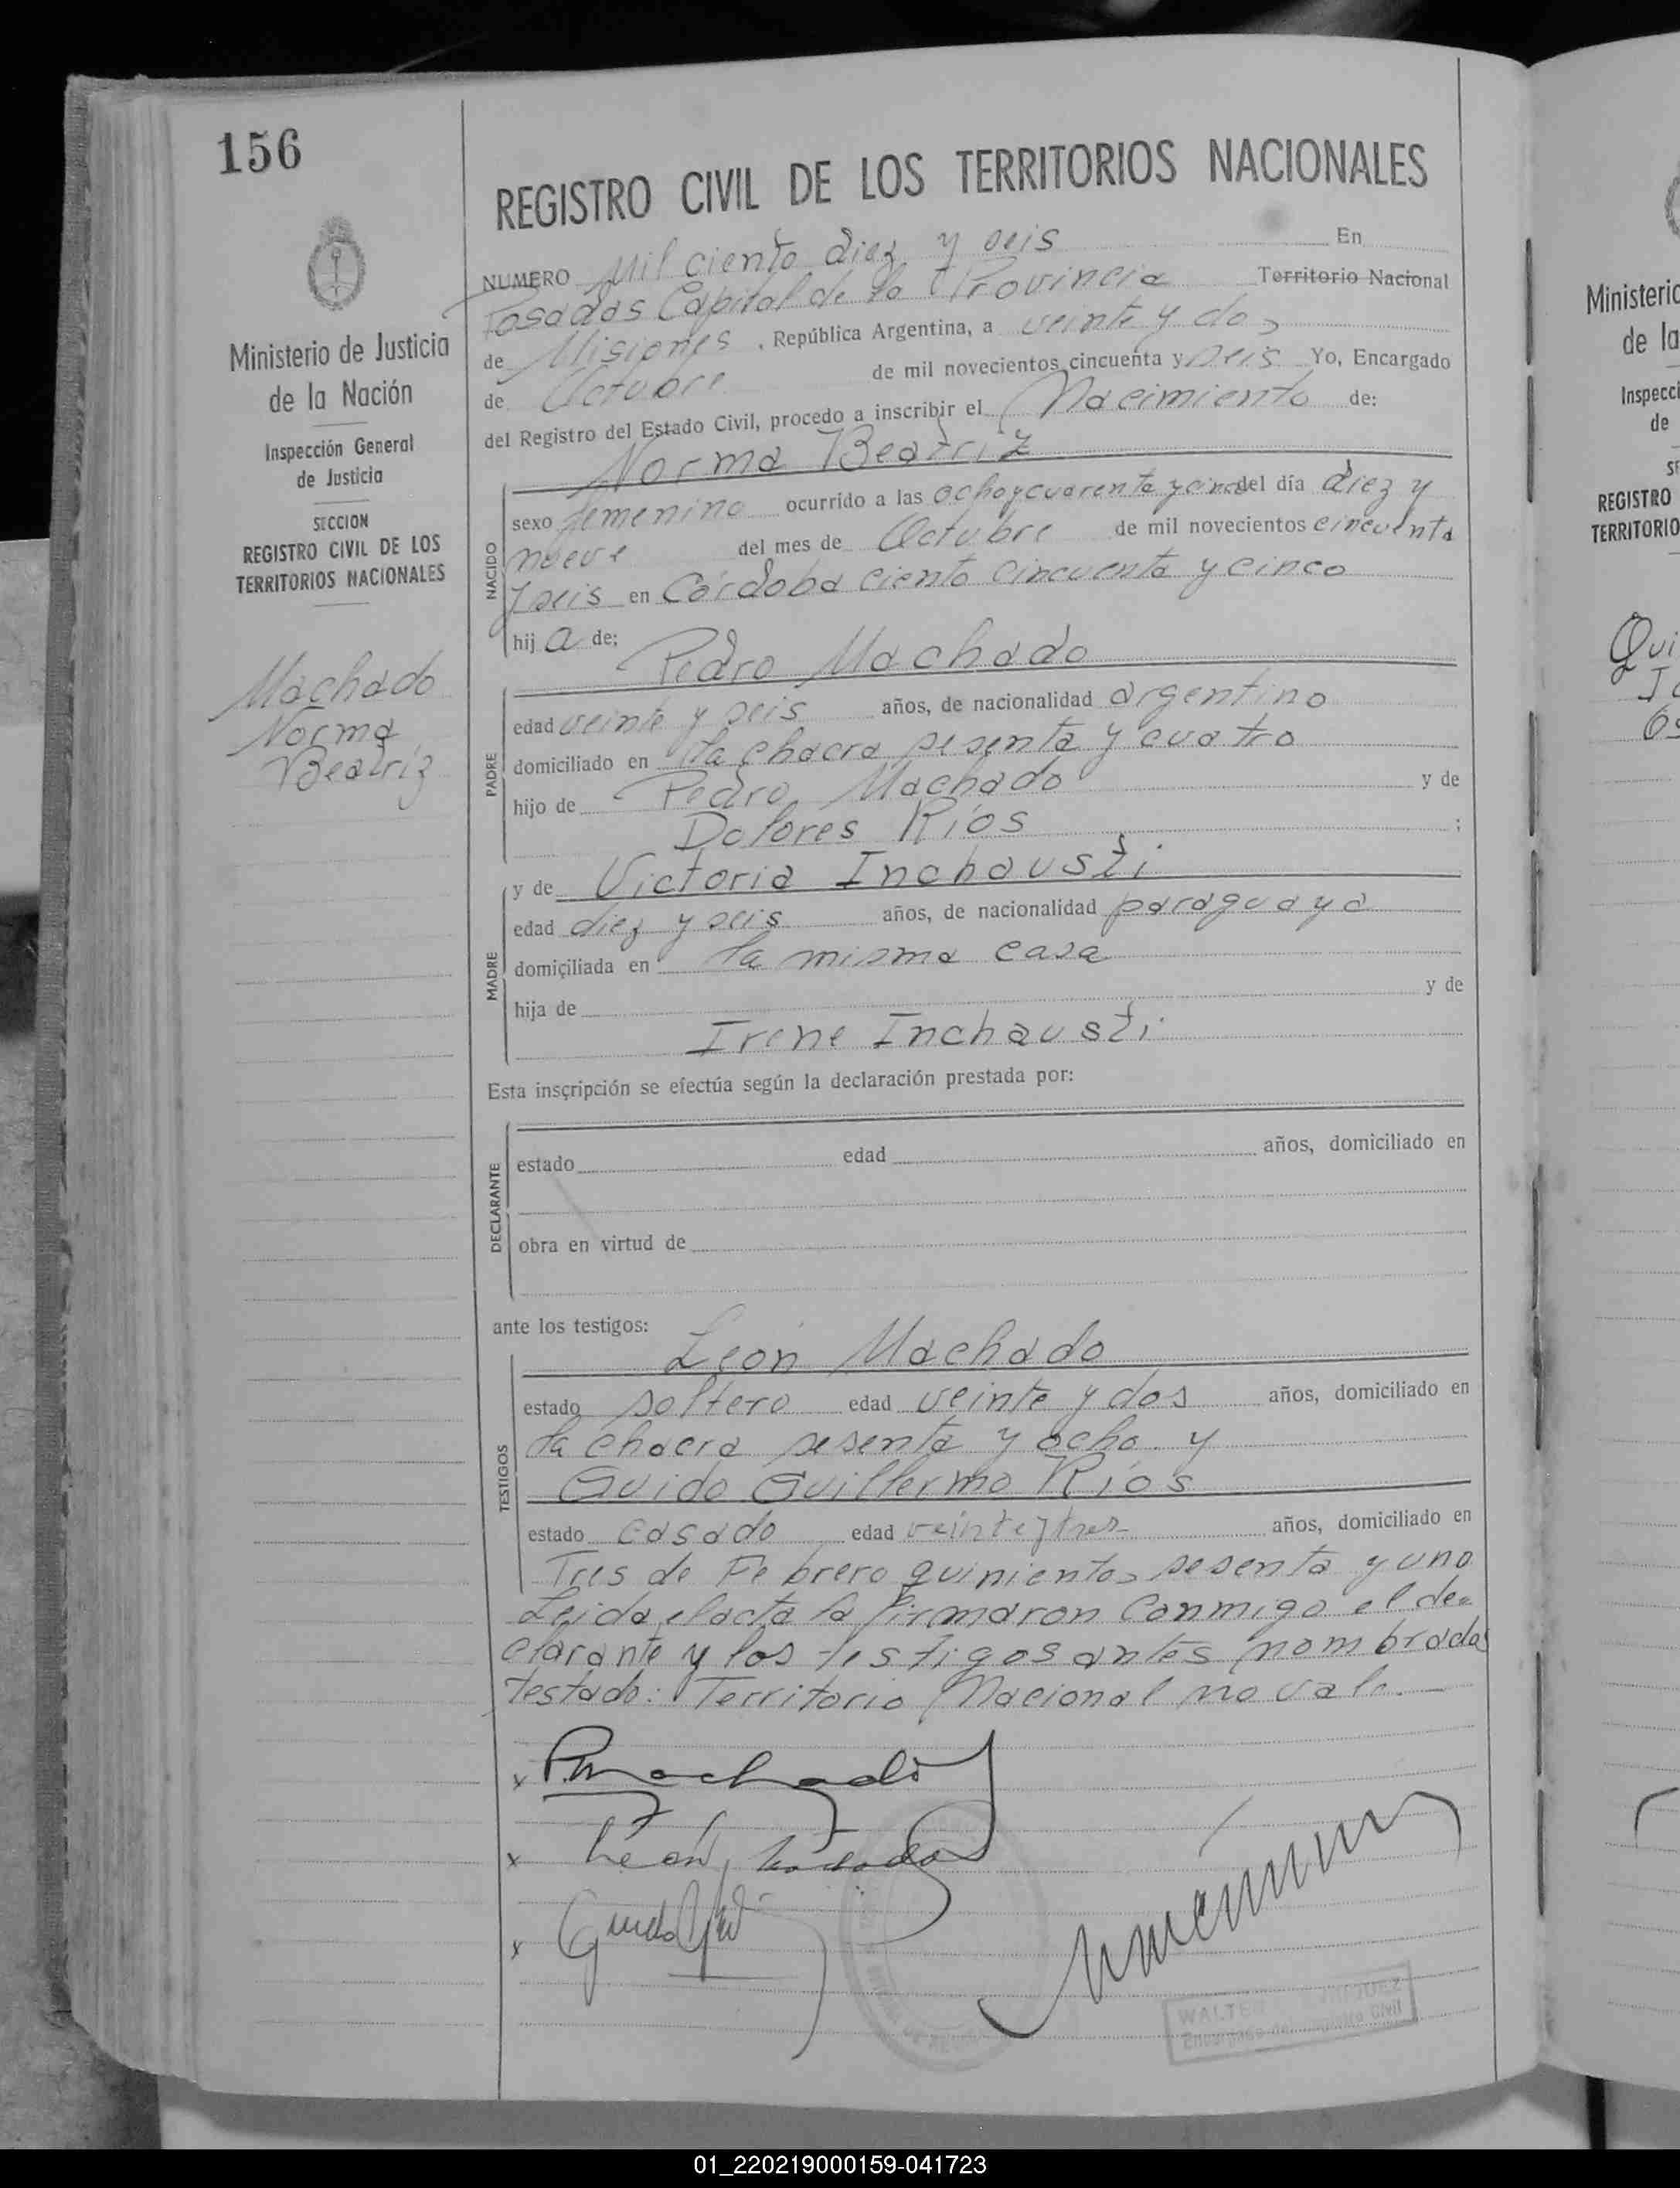 156
REGISTRO CIVIL DE LOS TERRITORIOS NACIONALES
NUMERO Mil ciento diez y seis En
Posadas Capital de la Provincia Territorio Nacional
de Misiones, República Argentina, a veinte y dos
de Octubre de mil novecientos cincuenta y seis Yo, Encargado
del Registro del Estado Civil, procedo a inscribir el Nacimiento de:
Norma Beatriz
NACIDO
sexo femenino ocurrido a las ocho y cuarenta y cinco del día diez y
nueve del mes de Octubre de mil novecientos cincuenta
y seis en Córdoba ciento cincuenta y cinco
hija de:
Pedro Machado
PADRE
edad veinte y seis años, de nacionalidad argentino
domiciliado en la chacra sesenta y cuatro
hijo de Pedro Machado y de
Dolores Ríos ;
y de Victoria Inchausti
MADRE
edad diez y seis años, de nacionalidad paraguaya
domiciliada en la misma casa
hija de y de
Irene Inchausti
Esta inscripción se efectúa según la declaración prestada por:
DECLARANTE
estado edad años, domiciliado en
obra en virtud de
ante los testigos:
León Machado
TESTIGOS
estado soltero edad veinte y dos años, domiciliado en
la chacra sesenta y ocho y
Guido Guillermo Ríos
estado casado edad veinte y tres años, domiciliado en
Tres de Febrero quinientos sesenta y uno
Leida el acta la firmaron conmigo el de=
clarante y los testigos antes nombrados
testado: Territorio Nacional no vale.—
x P. Machado
x León Machado
x Guido
WALTER
Encargado del Registro Civil
Ministerio de Justicia
de la Nación
Inspección General
de Justicia
SECCION
REGISTRO CIVIL DE LOS
TERRITORIOS NACIONALES
Machado
Norma
Beatriz
Ministerio
de la
Inspecci
de
SE
REGISTRO
TERRITORIO
Qui
01_220219000159-041723